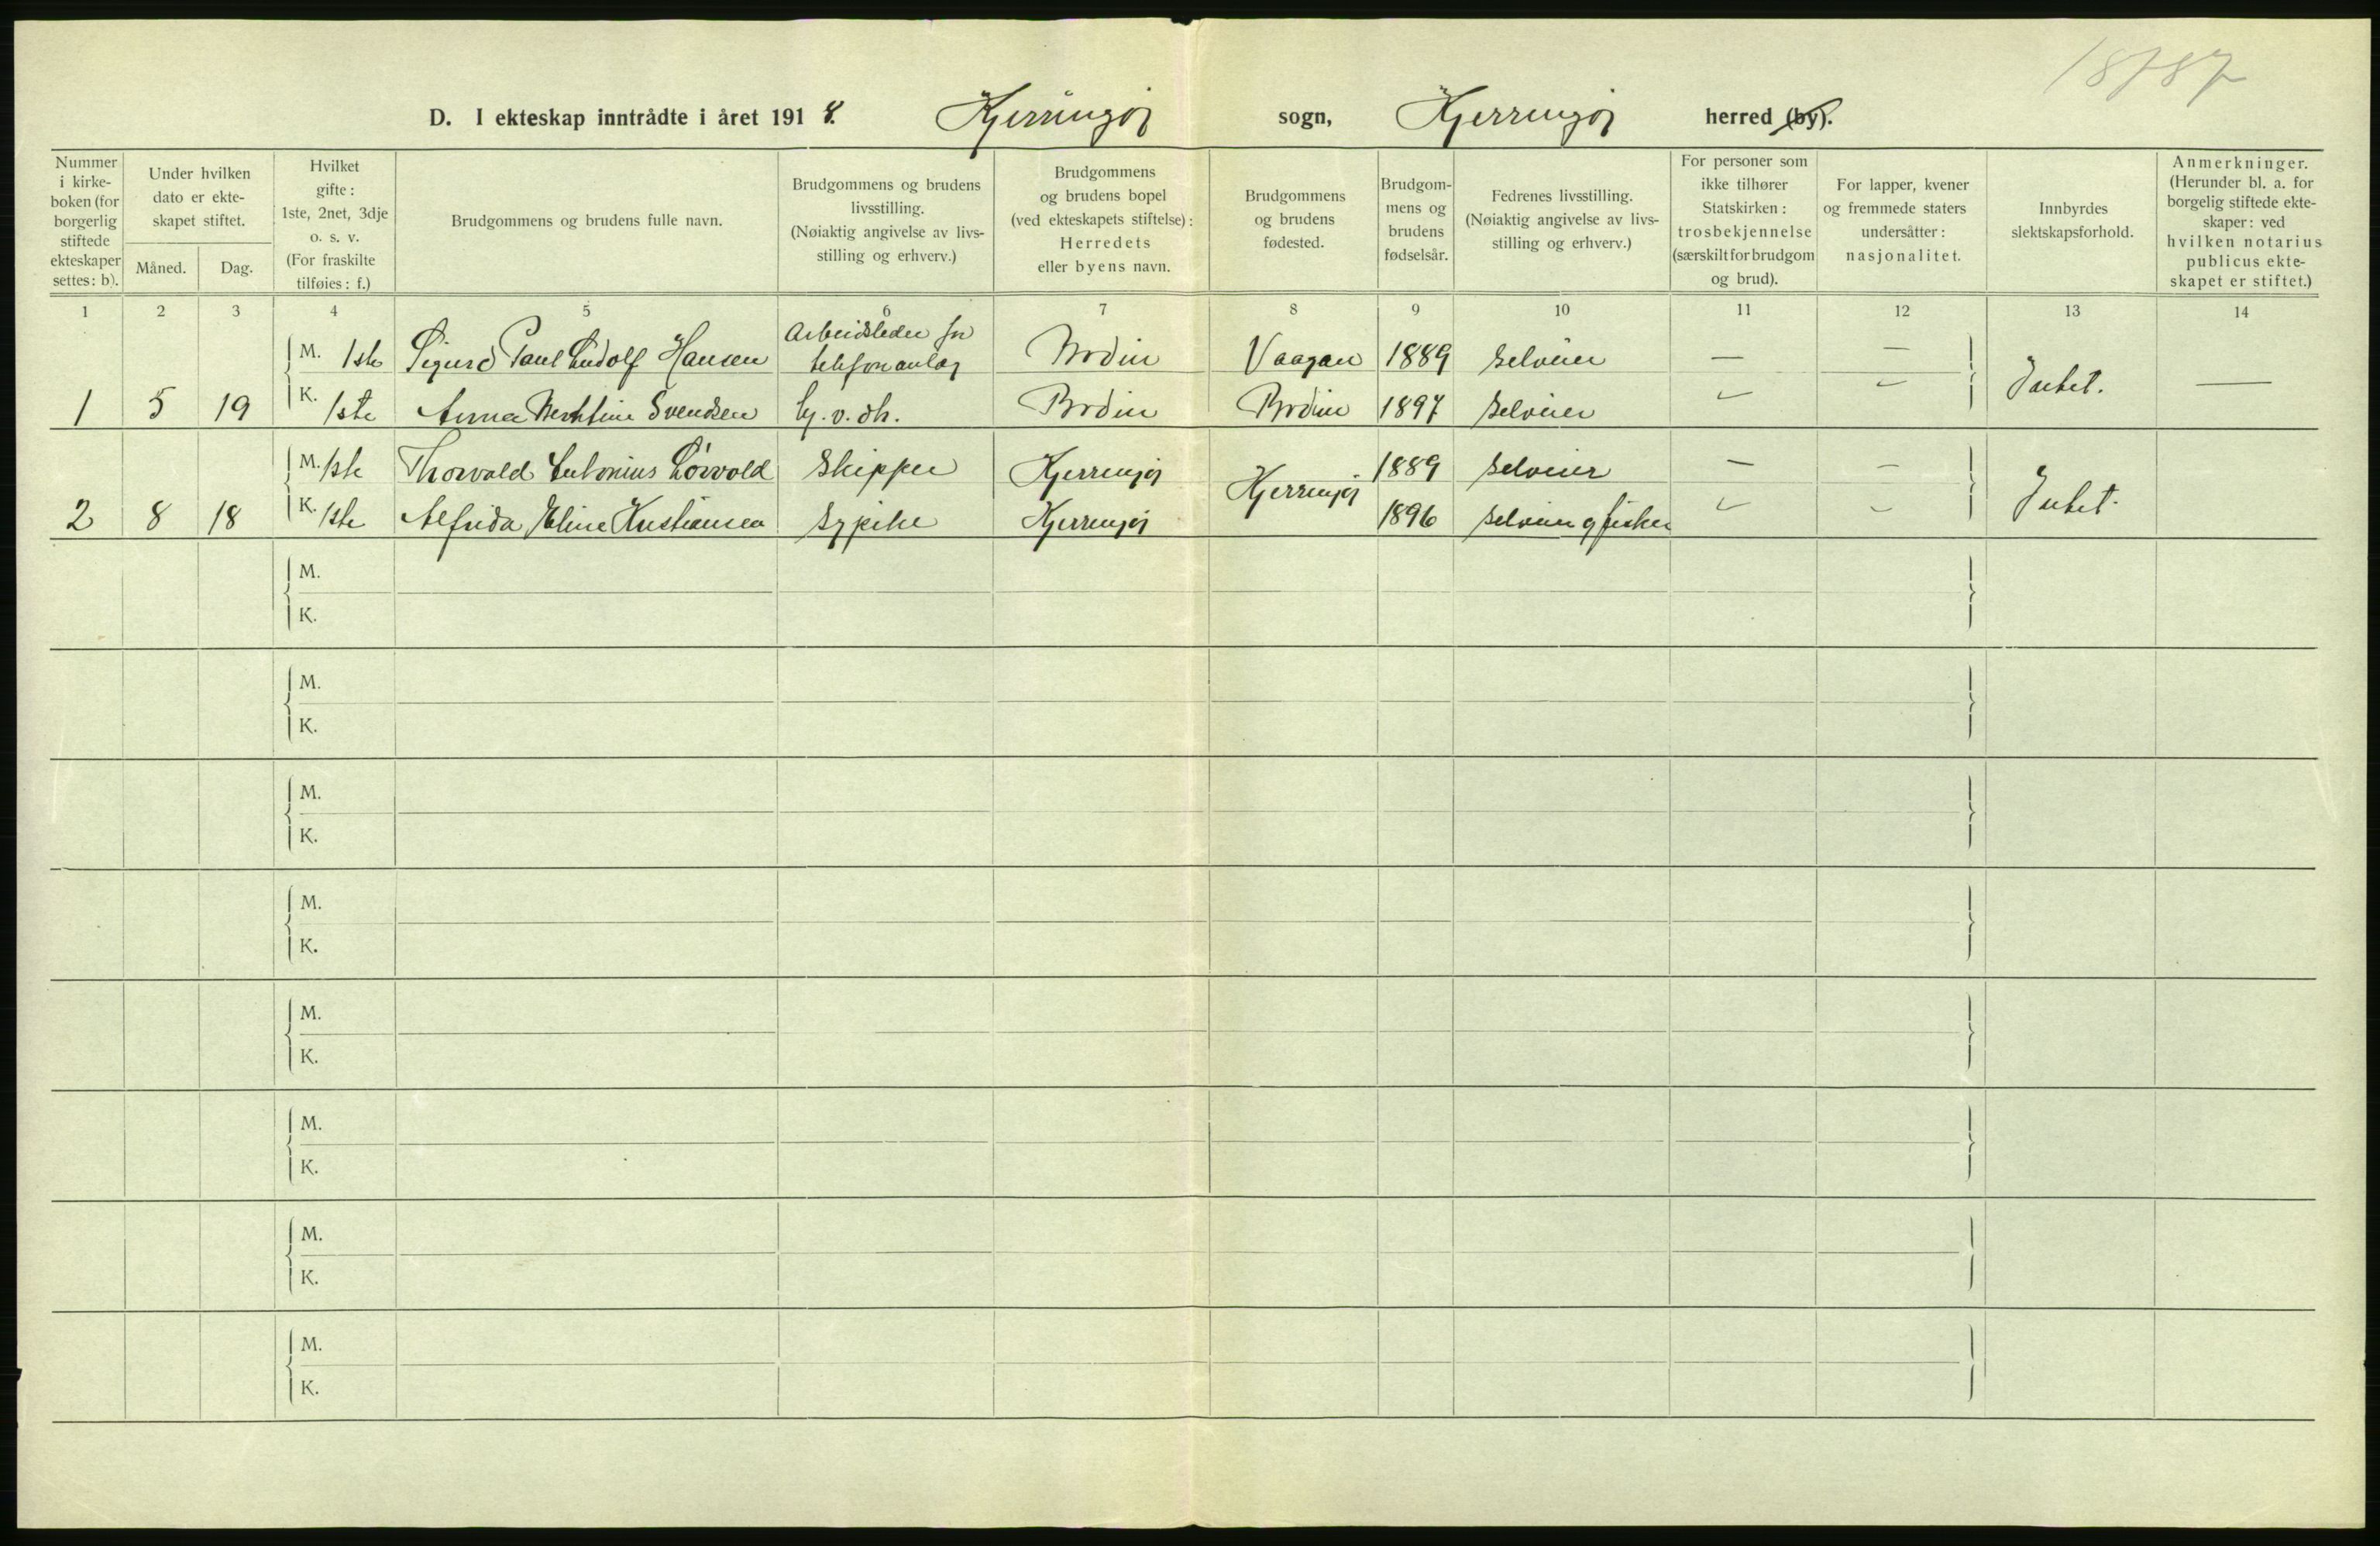 18787
D. I ekteskap inntrådte i året 1918. Kjerringøy sogn, Kjerringøy herred (by).
Nummer i kirke-boken (for borgerlig stiftede ekteskaper settes: b).
Under hvilken dato er ekte-skapet stiftet.
Måned. Dag.
Hvilket gifte: 1ste, 2net, 3dje o. s. v. (For fraskilte tilføies: f.)
Brudgommens og brudens fulle navn.
Brudgommens og brudens livsstilling. (Nøiaktig angivelse av livs-stilling og erhverv.)
Brudgommens og brudens bopel (ved ekteskapets stiftelse): Herredets eller byens navn.
Brudgommens og brudens fødested.
Brudgom-mens og brudens fødselsår.
Fedrenes livsstilling. (Nøiaktig angivelse av livs-stilling og erhverv.)
For personer som ikke tilhører Statskirken: trosbekjennelse (særskilt for brudgom og brud).
For lapper, kvener og fremmede staters undersåtter: nasjonalitet.
Innbyrdes slektskapsforhold.
Anmerkninger. (Herunder bl. a. for borgelig stiftede ekte-skaper: ved hvilken notarius publicus ekte-skapet er stiftet.)
1 2 3 4 5 6 7 8 9 10 11 12 13 14
M. 1ste Sigurd Paul Ludolf Hansen Arbeidsleder for telefonanlæg Bodin Vaagan 1889 selveier — —
1 5 19 K. 1ste Anna Berntine Svendsen Bodin Bodin 1897 selveier Intet. —
M. 1ste Thorvald Antonius Lørvold Skipper Kjerringøy Kjerringøy 1889 selveier — —
2 8 18 K. 1ste Alfrida Eline Kristiansen Sypike Kjerringøy 1896 selveier og fisker Intet.
M.
K.
M.
K.
M.
K.
M.
K.
M.
K.
M.
K.
M.
K.
M.
K.